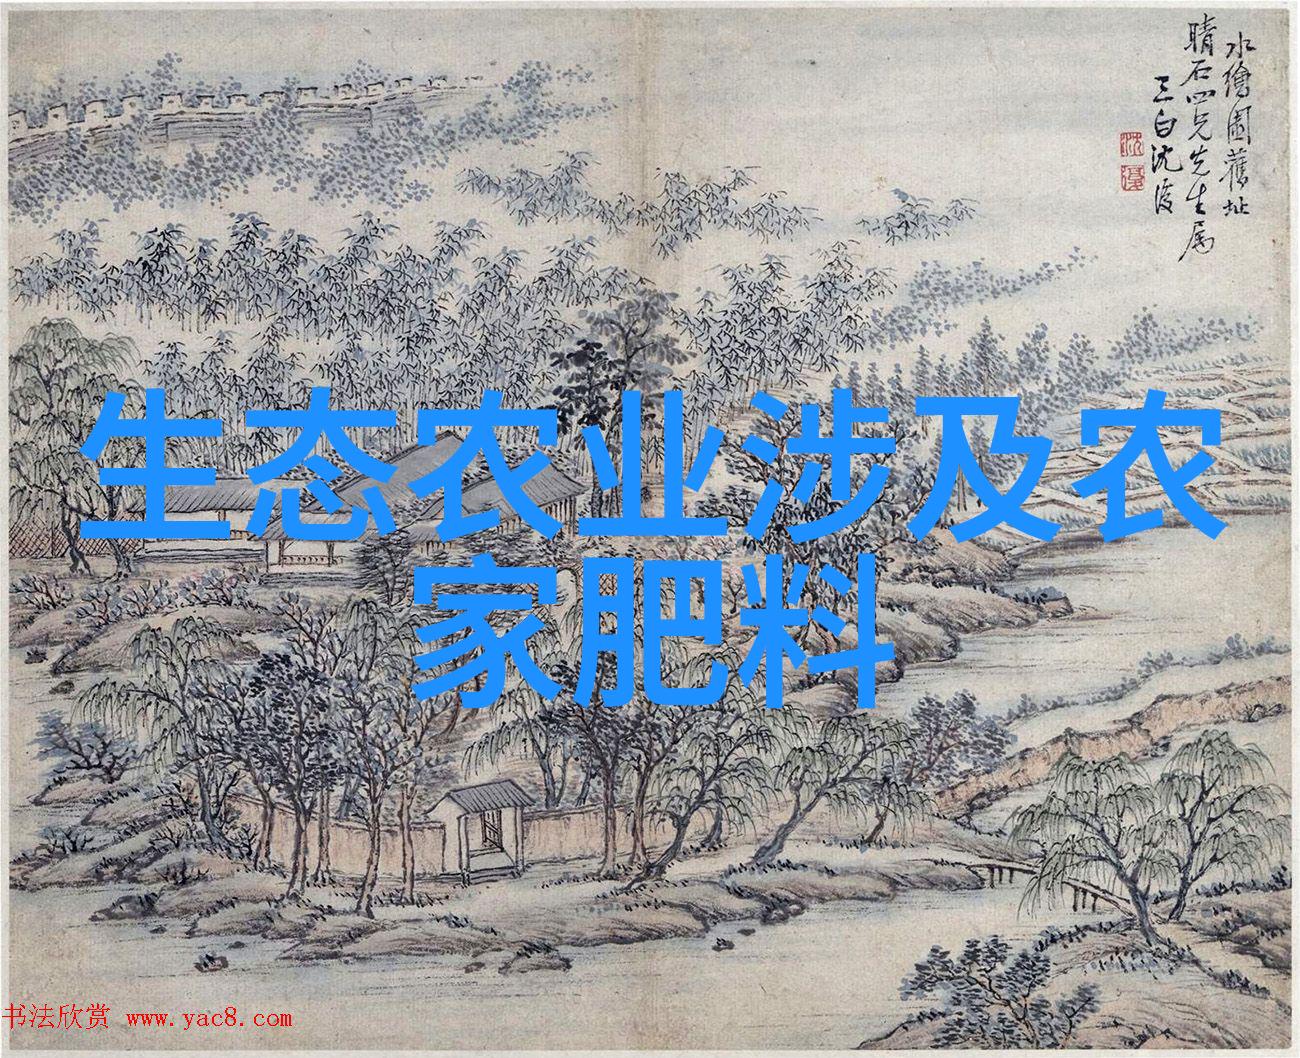 水繪園舊址
晴石四兄先生属
三白沈復
沈
復
生态农业涉及农
家肥料
书法欣赏 www.yac8.com